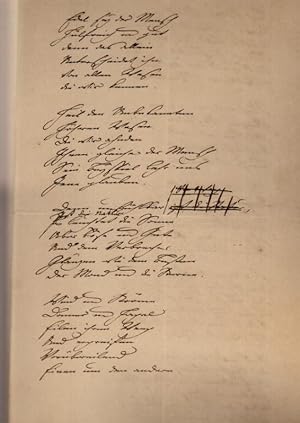 Edel sey der Mensch
Hülfreich und gut
Denn das allein
Unterscheidet ihn
Von allen Wesen
die wir kennen.
Heil den Unbekannten
Höheren Wesen
Die wir ahnden
Ihnen gleiche der Mensch
Sein Beyspiel lehr uns
Jene glauben.
Denn unfühlend
ist die Natur
Es leuchtet die Sonne
Über Bös und Gute
Und dem Verbrecher
Glänzen wie dem Besten
Der Mond und die Sterne.
Wind und Ströme
Donner und Hagel
Rauschen ihren Weg
Und ergreifen
Vorübereilend
Einen um den andern